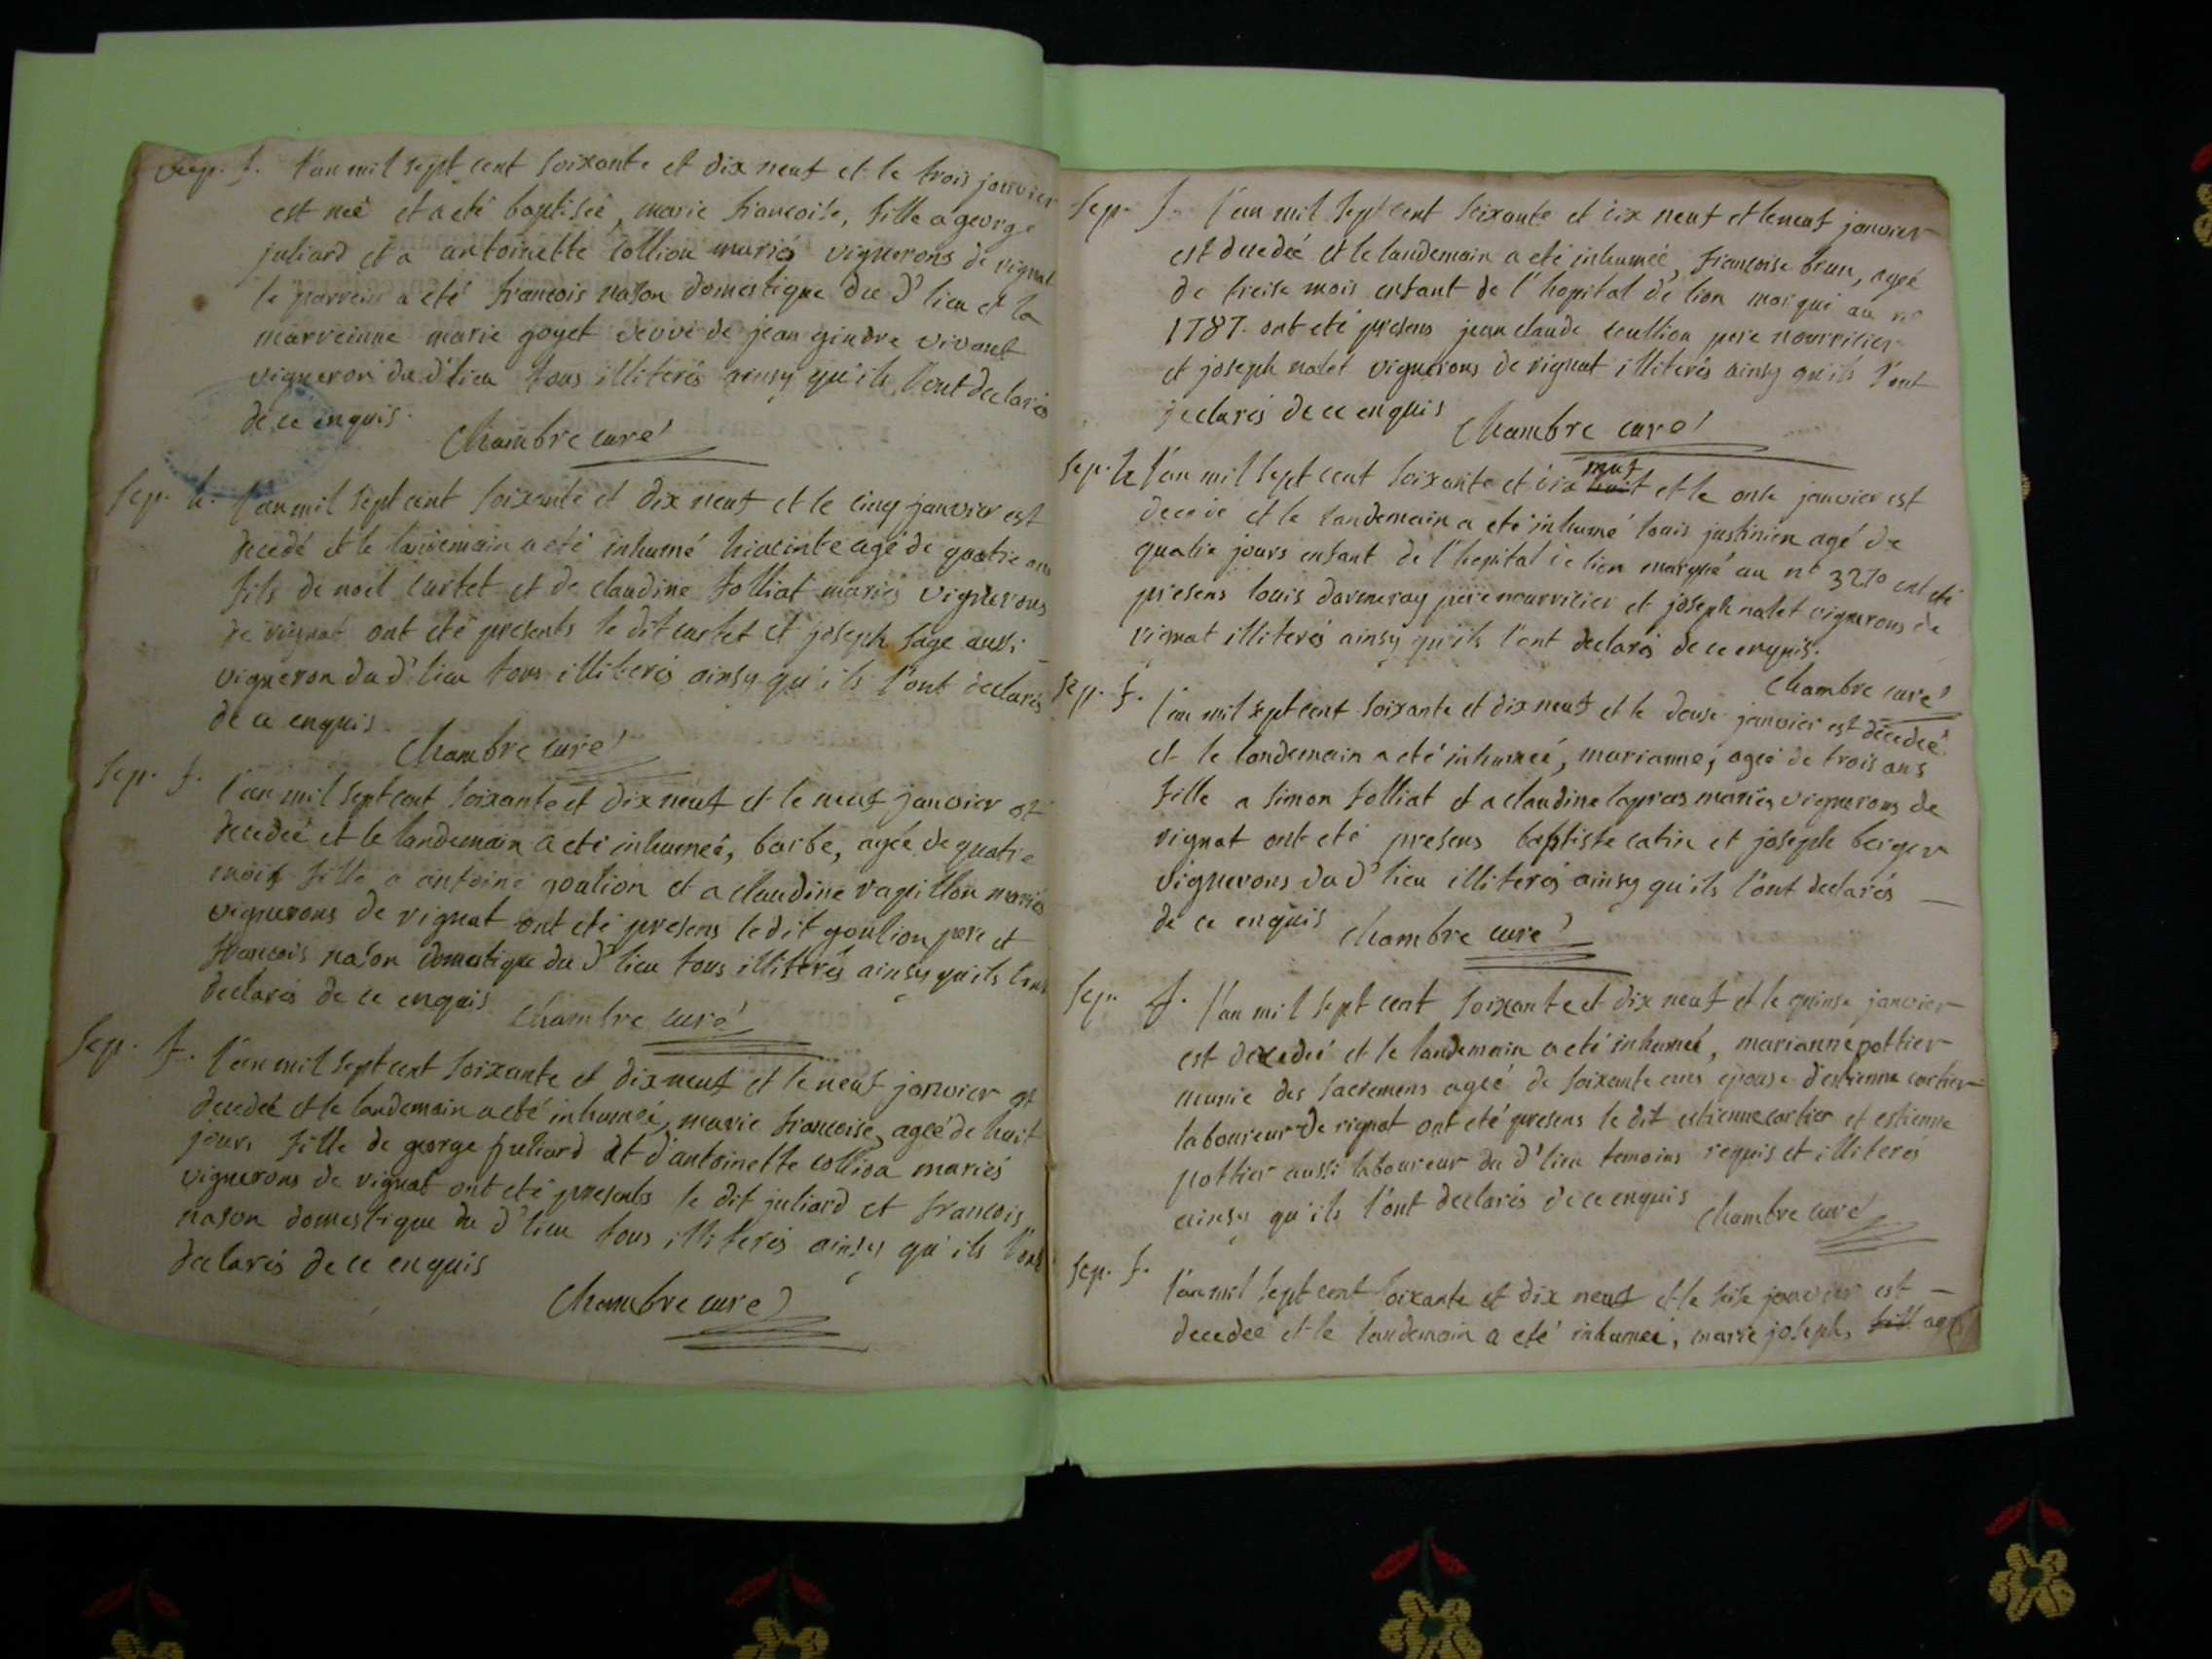 Bap. f. l'an mil sept cent soixante et dix neuf et le trois janvier
est neé et a eté baptiseé, marie francoise, fille a george
juliard et a antoinette collion mariés vignerons de rignat
le parrein a eté francois nason domestique du d' lieu et la
marreinne marie goyet veuve de jean gindre vivant
vigneron du d' lieu tous illiterés ainsy qu'ils l'ont declarés
de ce enquis.
Chambre curé
Sep. h. l'an mil sept cent soixante et dix neuf et le cinq janvier est
decedé et le landemain a eté inhumé hiacinte agé de quatre ans
fils de noel curtet et de claudine folliat mariés vignerons
de rignat ont eté presents le dit curtet et joseph sage aussi
vigneron du d' lieu tous illiterés ainsy qu'ils l'ont declarés
de ce enquis
Chambre curé
Sep. f. l'an mil sept cent soixante et dix neuf et le neuf janvier est
decedeé et le landemain a eté inhumeé, barbe, ageé de quatre
mois fille a antoine goulion et a claudine rapillon mariés
vignerons de rignat ont eté presens le dit goulion pere et
francois nason domestique du d' lieu tous illiterés ainsy qu'ils l'ont
declarés de ce enquis
Chambre curé
Sep. f. l'an mil sept cent soixante et dix neuf et le neuf janvier est
decedeé et le landemain a eté inhumeé, marie francoise, ageé de huit
jours fille de george juliard et d'antoinette collion mariés
vignerons de rignat ont eté presents le dit juliard et francois
nason domestique du d' lieu tous illiterés ainsy qu'ils l'ont
declarés de ce enquis
Chambre curé
Sep. f. l'an mil sept cent soixante et dix neuf et le neuf janvier
est decedeé et le landemain a eté inhumeé, francoise brun, ageé
de treise mois enfant de l'hopital de lion au n°
1787. ont eté presens jean claude coullion pere nourricier
et joseph nalet vignerons de rignat illiterés ainsy qu'ils l'ont
declarés de ce enquis
Chambre curé
Sep. h l'an mil sept cent soixante et dix huit neuf et le onse janvier est
decedé et le landemain a eté inhumé louis justinien agé de
quatre jours enfant de l'hopital de lion marqué au n° 3270 ont eté
presens louis darmeray pere nourricier et joseph nalet vignerons de
rignat illiterés ainsy qu'ils l'ont declarés de ce enquis.
Chambre curé
Sep. f. l'an mil sept cent soixante et dix neuf et le douse janvier est decedeé
et le landemain a eté inhumeé, marianne, ageé de trois ans
fille a simon folliat et a claudine lapras mariés vignerons de
rignat ont eté presens baptiste catin et joseph berger
vignerons du d' lieu illiterés ainsy qu'ils l'ont declarés
de ce enquis
Chambre curé
Sep. f. l'an mil sept cent soixante et dix neuf et le quinse janvier
est decedeé et le landemain a eté inhumeé, marianne pottier
munie des sacremens ageé de soixante ans epouse d'estienne cartier
laboureur de rignat ont eté presens le dit estienne cartier et estienne
pottier aussi laboureur du d' lieu temoins requis et illiterés
ainsy qu'ils l'ont declarés de ce enquis
Chambre curé
Sep. f. l'an mil sept cent soixante et dix neuf et le seise janvier est
decedeé et le landemain a eté inhumeé, marie joseph, fill ageé